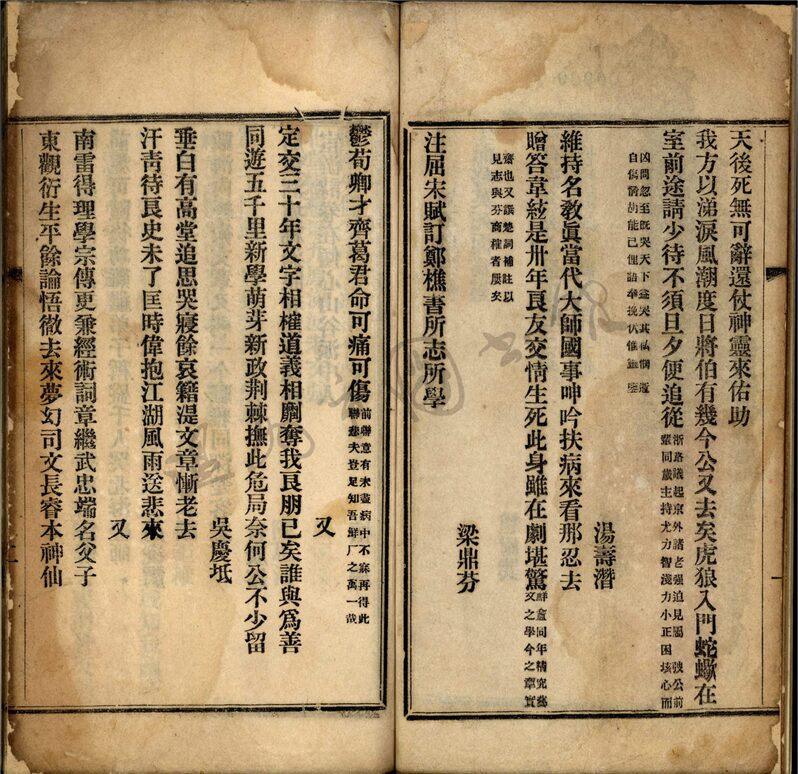 天後死無可辭還仗神靈來佑助
我方以涕淚風潮度日將伯有幾今公又去矣虎狼入門蛇蠍在
室前途請少待不須旦夕便追從
浙路議起京外諸老强迫見屬 公前
輩同歲主持尤力智淺力小正困垓心而
凶問忽至既哭天下益哭其私惘
自傷 能已俚語奉挽伏惟
湯壽潛
維持名敎眞當代大師國事呻吟扶病來看那忍去
贈答韋絃是卅年良友交情生死此身雖在劇堪驚
鮮盦同年精究藝
文之學今之章實
齋也又譔楚詞補註以
見志與芬商榷者屢矣
梁鼎芬
注屈宋賦訂鄭樵書所志所學
鬱荀卿才齊葛君命可痛可傷
前聯意有未盡病中不寐再得此
聯 夫豈足知吾鮮厂之萬一哉
又
定交三十年文字相榷道義相劘奪我良朋已矣誰與爲善
同遊五千里新學萌芽新政荆棘撫此危局奈何公不少留
吳慶坻
垂白有高堂追思哭寢餘哀籍湜文章慚老去
汗靑待良史未了匡時偉抱江湖風雨送悲來
又
南雷得理學宗傳更兼經術詞章繼武忠端名父子
東觀衍生平餘論悟徹去來夢幻司文長睿本神仙